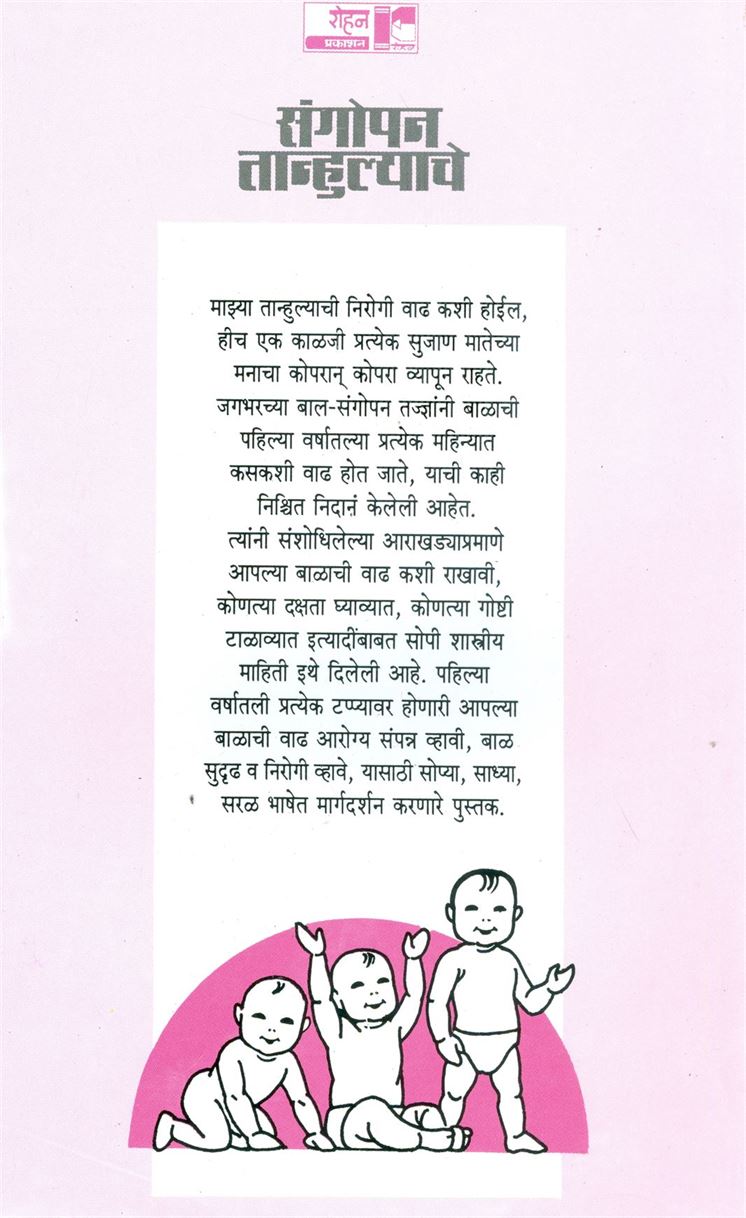 रोहन
प्रकाशन
रोहन
संगोपन
तान्हुल्याचे
माझ्या तान्हुल्याची निरोगी वाढ कशी होईल,
हीच एक काळजी प्रत्येक सुजाण मातेच्या
मनाचा कोपरान् कोपरा व्यापून राहते.
जगभरच्या बाल-संगोपन तज्ज्ञांनी बाळाची
पहिल्या वर्षातल्या प्रत्येक महिन्यात
कसकशी वाढ होत जाते, याची काही
निश्चित निदानं केलेली आहेत.
त्यांनी संशोधिलेल्या आराखड्याप्रमाणे
आपल्या बाळाची वाढ कशी राखावी,
कोणत्या दक्षता घ्याव्यात, कोणत्या गोष्टी
टाळाव्यात इत्यादींबाबत सोपी शास्त्रीय
माहिती इथे दिलेली आहे. पहिल्या
वर्षातली प्रत्येक टप्प्यावर होणारी आपल्या
बाळाची वाढ आरोग्य संपन्न व्हावी, बाळ
सुदृढ व निरोगी व्हावे, यासाठी सोप्या, साध्या,
सरळ भाषेत मार्गदर्शन करणारे पुस्तक.